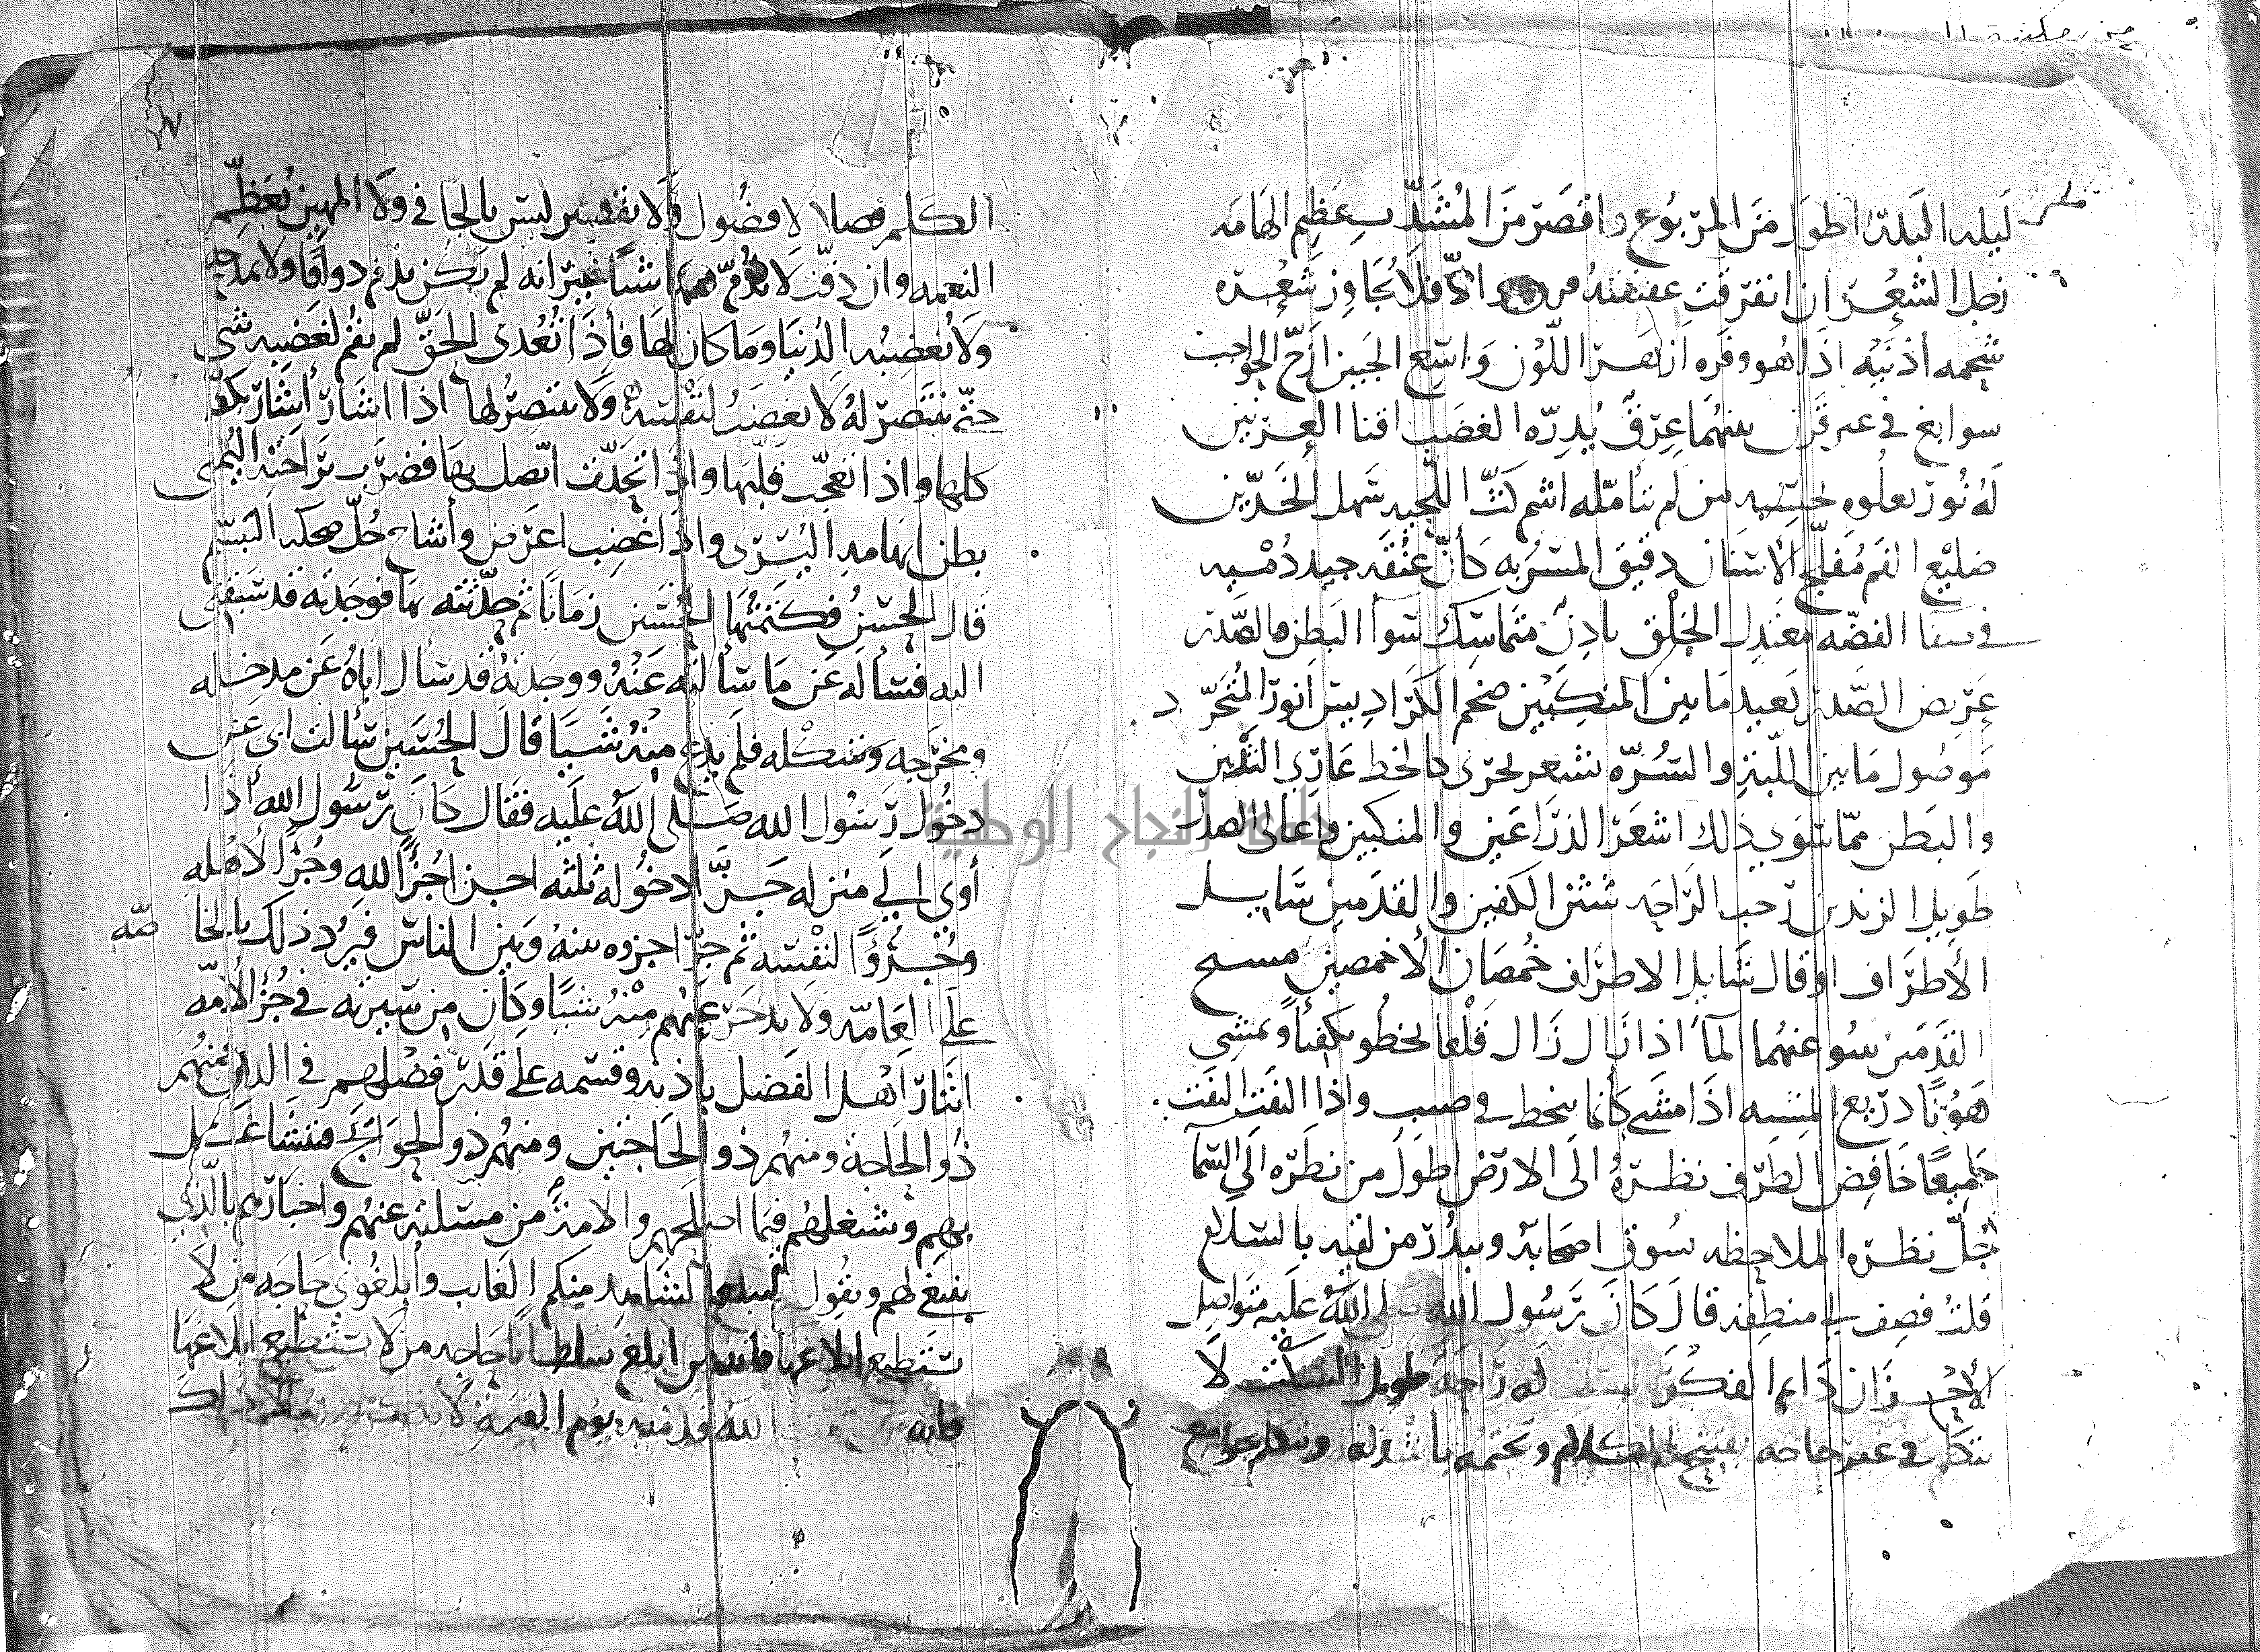 ليله البدر اطول من المربوع واقصر من المشذب عظيم الهامه
رجل الشعر ان انفرقت عقيقته فرق والا فلا يجاوز شعره
شحمه اذنيه اذا هو وفره ازهر اللون واسع الجبين ازج الحواجب
سوابغ في غير قرن بينهما عرق يدره الغضب اقنا العرنين
له نور يعلوه يحسبه من لم يتأمله اشم كث اللحيه سهل الخدين
ضليع الفم مفلج الاسنان دقيق المسربه كأن عنقه جيد دميه
في صفا الفضه معتدل الخلق بادن متماسك سوا البطن والصدر
عريض الصدر بعيد ما بين المنكبين ضخم الكراديس أنور المتجرد
موصول ما بين اللبه والسره بشعر يجرى كالخط عاري الثديين
والبطن مما سوى ذلك اشعر الذراعين والمنكبين واعالى الصدر
طويل الزندين رحب الراحه شثن الكفين والقدمين سايل
الأطراف او قال شايل الاطراف خمصان الأخمصين مسيح
القدمين ينبو عنهما المآ اذا زال زال قلعا يخطو تكفئاً ويمشي
هونًا ذريع المشيه اذا مشى كأنما ينحط في صبب واذا التفت التفت
جميعًا خافض الطرف نظره الى الارض اطول من نظره الى السمآ
جل نظره الملاحظه يسوق اصحابه ويبدر من لقيه بالسلام
قلت فصف لي منطقه قال كان رسول الله صلى الله عليه متواصل
الأحزان دايم الفكر ليست له راحه طويل السكت لا
يتكلم في غير حاجه يفتتح الكلام ويختمه باشداقه ويتكلم بجوامع
الكلم فصلا لا فضول ولا تقصير ليس بالجافي ولا المهين يعظم
النعمه وان دقت لا يذم منها شيأ غير انه لم يكن يذم ذواقا ولا يمدحه
ولا تغضبه الدنيا وما كان لها فأذا تعدى الحق لم يقم لغضبه شي
حتى ينتصر له لا يغضب لنفسه ولا ينتصر لها اذا اشار أشار بكفه
كلها واذا تعجب قلبها واذا تحدث اتصل بها فضرب براحته اليمنى
بطن ابهامه اليسرى واذا غضب اعرض وأشاح جل ضحكه التبسم
قال الحسن فكتمتها الحسين زمانا ثم حدثته بها فوجدته قد سبقني
اليه فسأله عن ما سألته عنه ووجدته قد سأل اباه عن مدخله
ومخرجه وشكله فلم يدع منه شيا قال الحسين سألت ابي عن
دخول رسول الله صلى الله عليه فقال كان رسول الله أذا
أوى الي منزله جزأ دخوله ثلثه اجزا جزأ لله وجزأ لأهله
وجزؤًا لنفسه ثم جزا جزوه بينه وبين الناس فيرد ذلك بالخاصه
على العامه ولا يدخر عنهم منه شيا وكان من سيرته في جزأ الأمه
ايثار اهل الفضل باذنه وقسمه على قدر فضلهم في الدين منهم
ذو الحاجه ومنهم ذو الحاجتين ومنهم ذو الحوائج فيتشاغل
بهم ويشغلهم فيما اصلحهم والامه من مسئلته عنهم واخبارهم بالذي
ينبغي لهم ويقول ليبلغ الشاهد منكم الغايب وأبلغوني حاجه من لا
يستطيع ابلاغها فانه من ابلغ سلطانا حاجه من لا يستطيع ابلاغها
فانه الله قدميه يوم القيمه لا
جامعة النجاح الوطنية